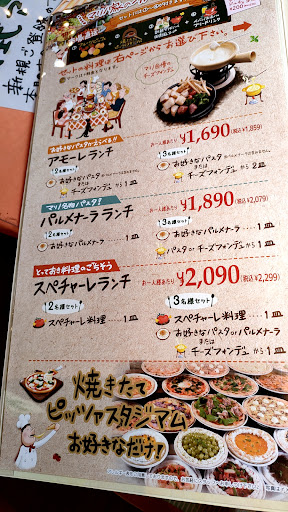 セットの料理は右ページからお選び下さい。
マリノ自慢の
チーズフォンデュ
お好きなパスタが大えらべる!!
アモーレランチ
お一人様あたり ¥1,690(税込¥1,859)
2名様セット
お好きなパスタ
または
チーズフォンデュ から1皿
3名様セット
お好きなパスタ
または
チーズフォンデュ から2皿
マリノ名物パスタ!
パルメナーラランチ
お一人様あたり ¥1,890(税込¥2,079)
2名様セット
お好きなパルメナーラ……1皿
3名様セット
お好きなパルメナーラ……1皿
パスタ or チーズフォンデュ から1皿
とっておき料理のごちそう
スペチャーレランチ
お一人様あたり ¥2,090(税込¥2,299)
2名様セット
スペチャーレ料理……1皿
3名様セット
スペチャーレ料理……1皿
お好きなパスタorパルメナーラ
または
チーズフォンデュから……1皿
焼きたて
ピッツァスタジマム
お好きなだけ!